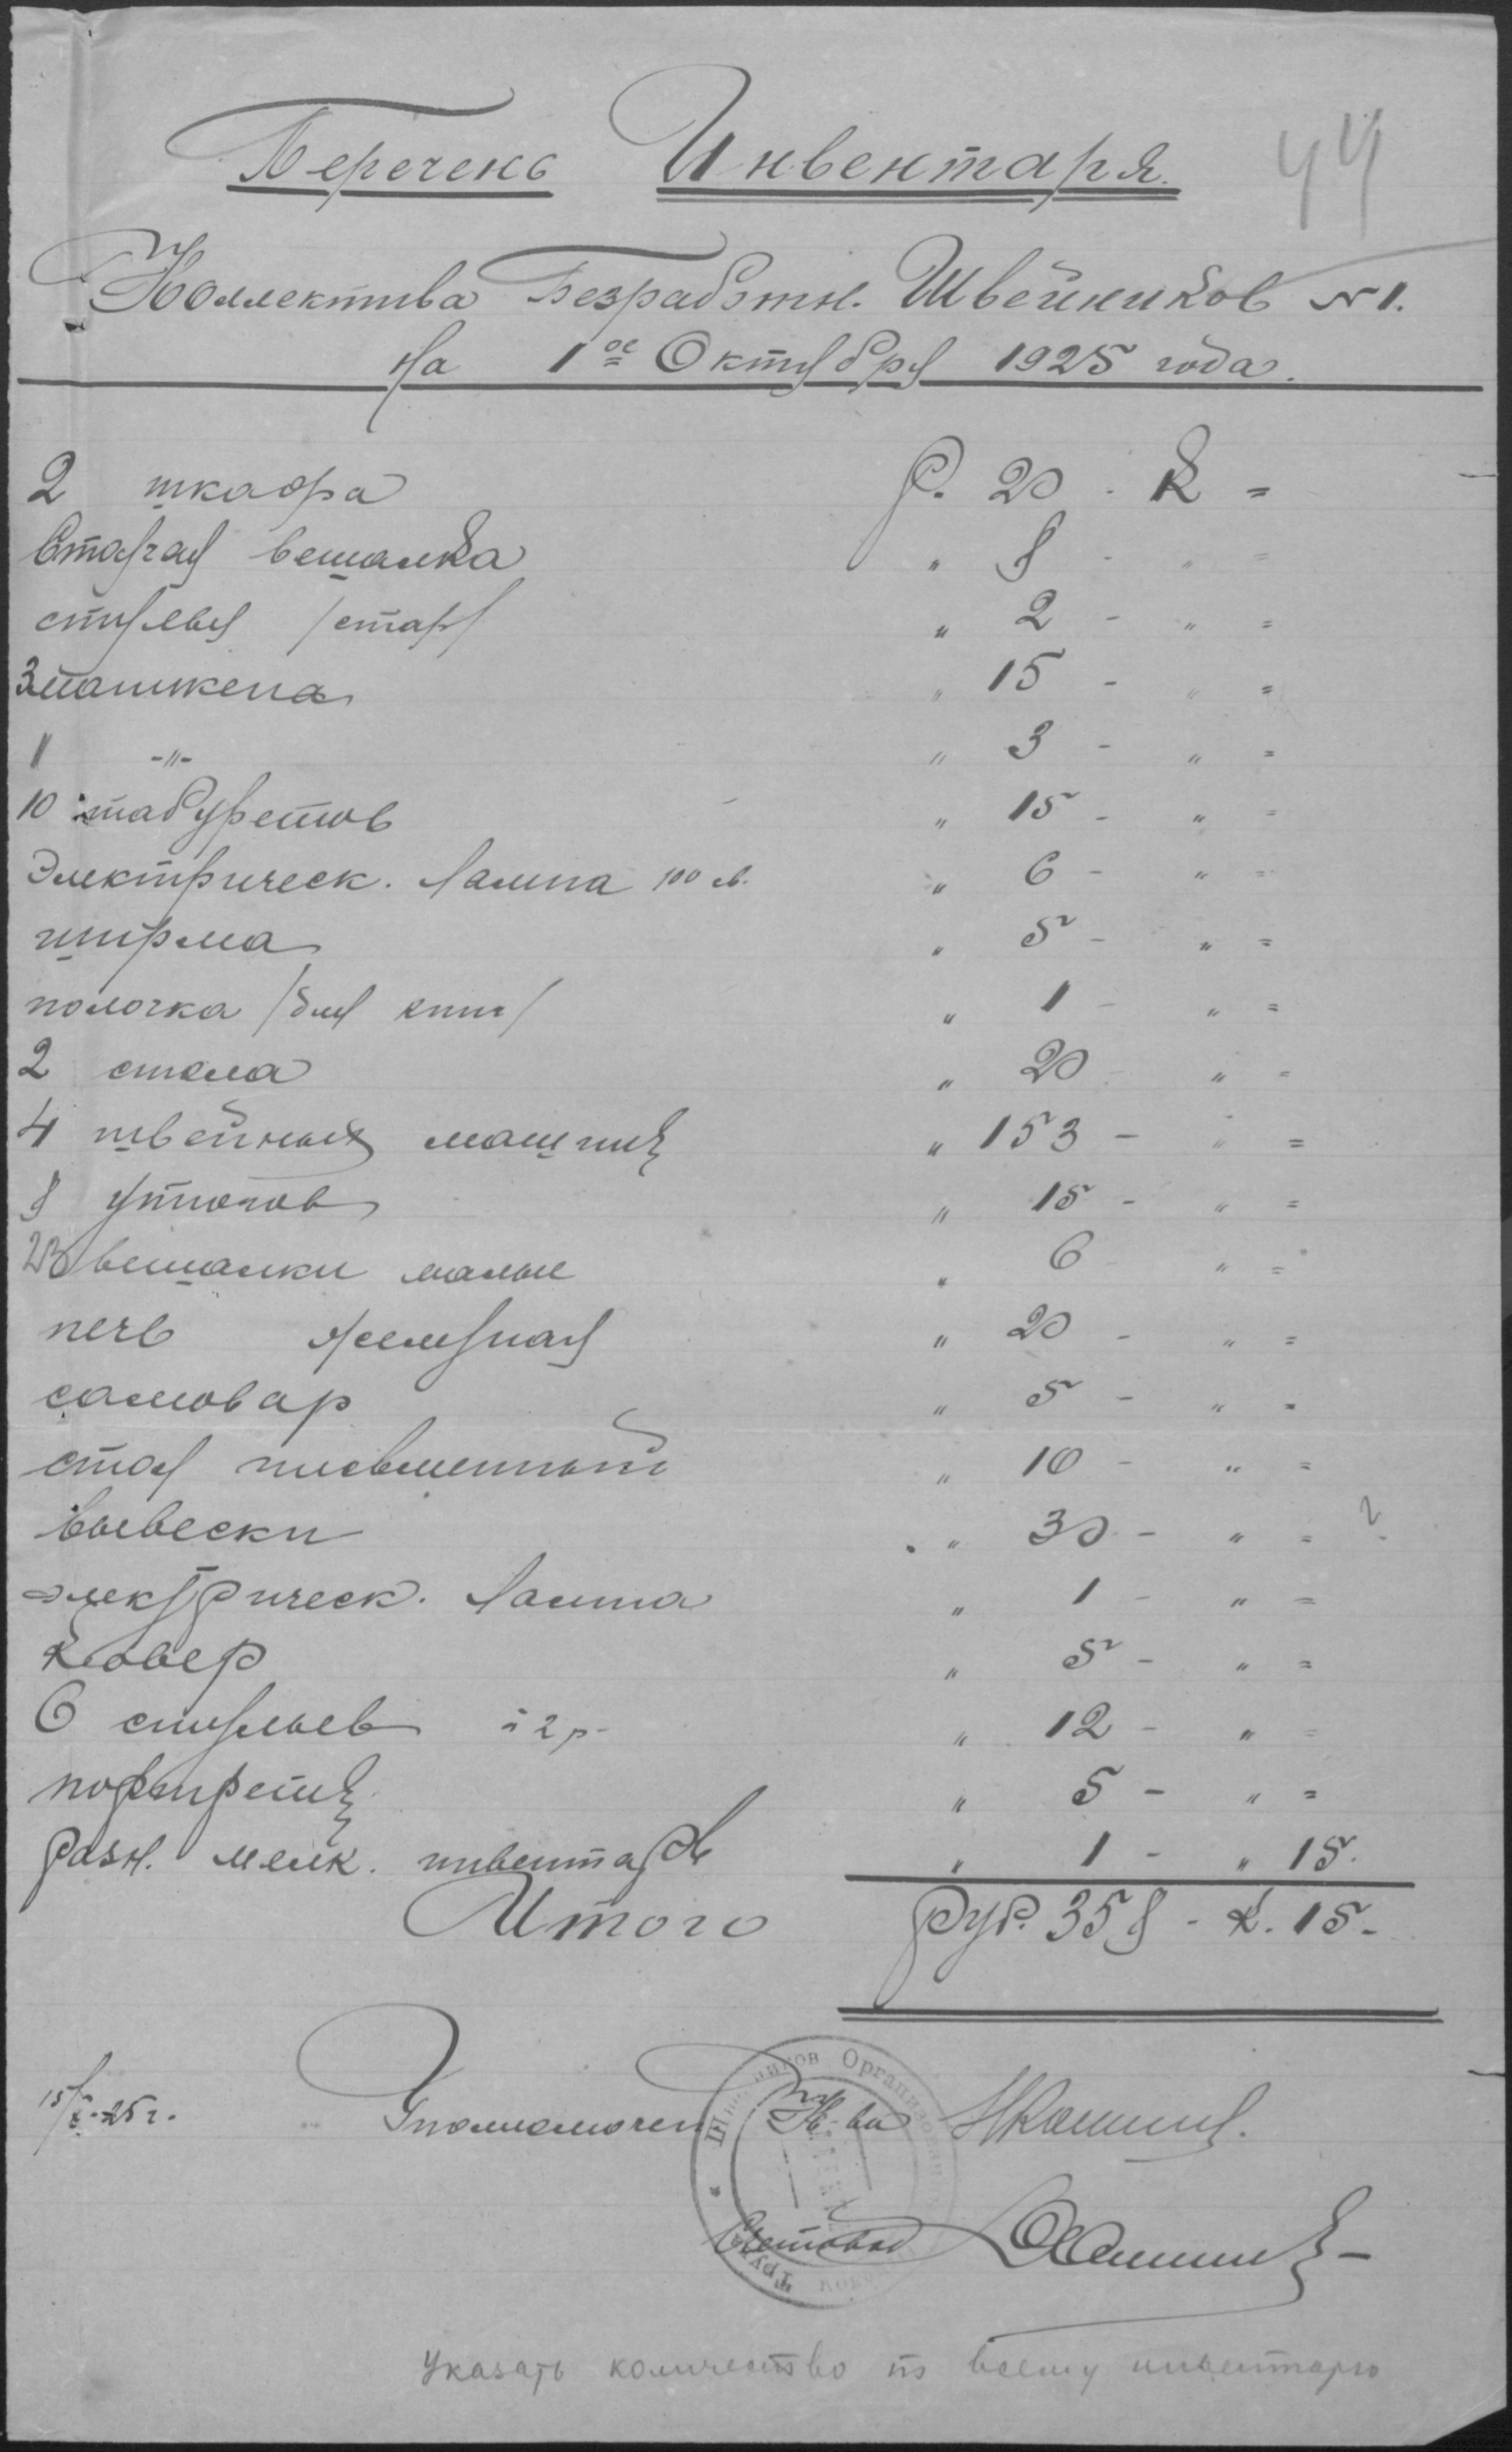 Перечень Инвентаря.
44
Коллектива Безработн. Швейников №1.
На 1ое Октября 1925 года.
2 шкафа р. 20 - к =
Стоячая вешалка " 8 - " =
стулья /стар/ " 2 - " =
3 манекена " 15 - " =
1 -"- " 3 - " =
10 табуретов " 15 - " =
Электрическ. лампа 100 св. " 6 - " =
ширма " 5 - " =
полочка /для книг/ " 1 - " =
2 стола " 20 - " =
4 швейных машины " 153 - " =
8 утюгов " 15 - " =
23 вешалки малые " 6 - " =
печь железная " 20 - " =
самовар " 5 - " =
стол письменный " 10 - " =
Вывески " 30 - " = ?
электрическ. лампа " 1 - " =
Ковер " 5 - " =
6 стульев à 2 р- " 12 - " =
портреты " 5 - " =
разн. мелк. инвентарь " 1 - " 15.
Итого руб. 358 - к. 15-
15/X-25 г. Уполномочен К-ва
Счетовод
Указать количество по всему инвентарю